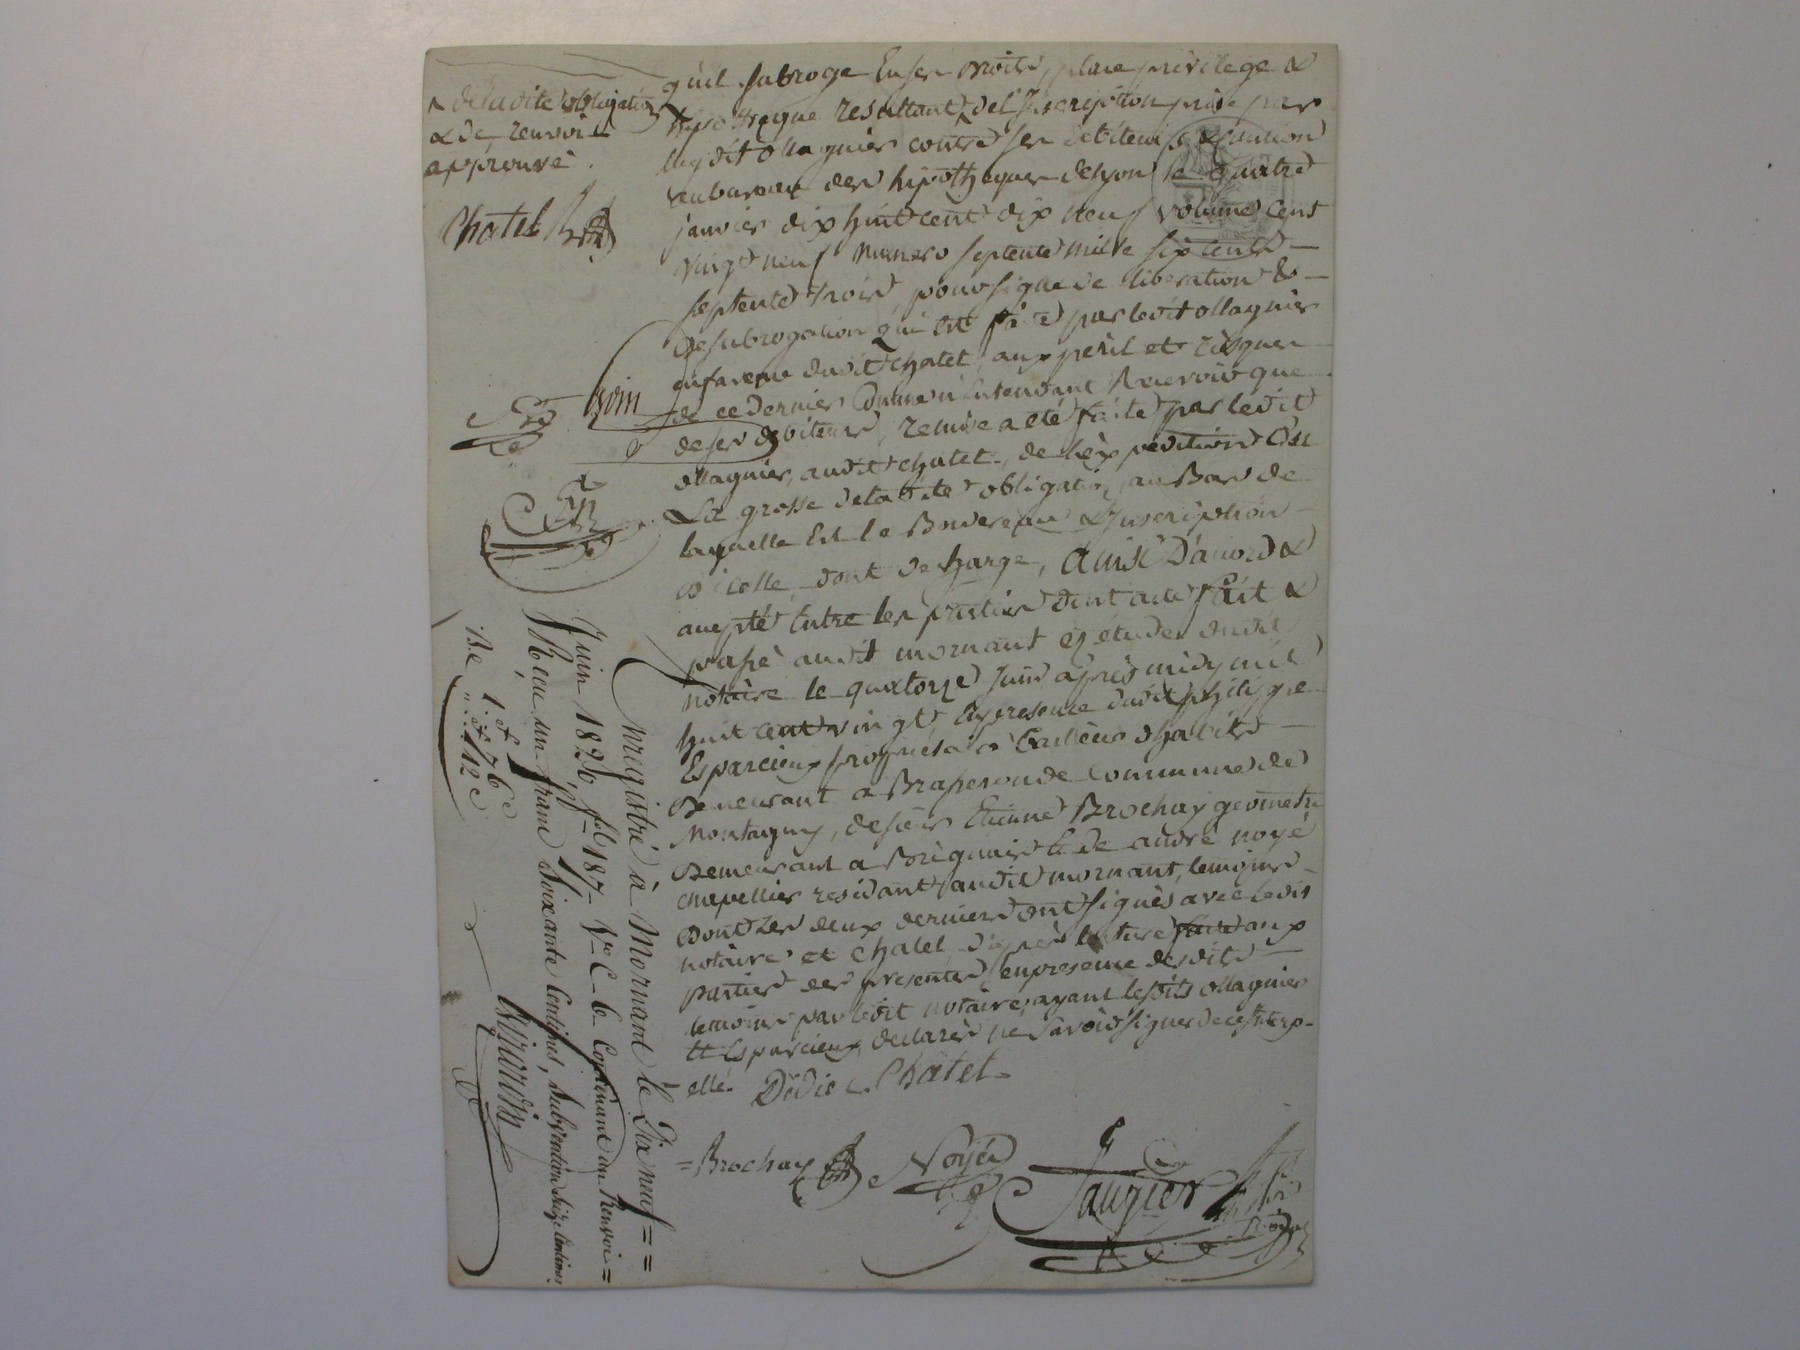 qu'il subroge En ses droits, place privilege &
hipotheque resultant, de l'Inscription prise par
ledit ollagnier contre ses debiteurs & caution
au bureau des hipotheques de lyon le quatre
janvier dix huit cent dix neuf volume cent
vingt neuf numero septente mille six cents
septente trois, pour signe de liberation &
de subrogation qui est faite par ledit ollagnier
en faveur dudit chatel, aux peril et risques
de ce dernier Comme n'Entendant Recevoir que
de ses debiteurs, remise a été faite par ledit
ollagnier, audit chatel, de l'expedition En
La grosse de ladite obligation, au Bas de
laquelle Est le Bordereau d'Inscription
d'icelle dont decharge, Ainsi D'acord &
accepté Entre les parties dont acte fait &
passé audit mornant en étude dudit
notaire le quatorze Juin après midy mil
huit cent vingt En presence dudit philippe
Esparcieux propriétaire tailleur d'habits
Demeurant a Brasseronde Commune de
Montagny, de sieur Etienne Brochay geometre
Demeurant a & de andré noyé
chapellier residant audit mornant, temoins
Dont Les deux derniers ont signés avec ledit
notaire et chatel, d'après lecture faite aux
parties des presentes, en presence desdits
temoins par ledit notaire, ayant lesdits ollagnier
et Esparcieux, declarés ne savoir signer de ce Enterp-
ellé. Dédié Chatel
=Brochay Noyé Saugier
^ de ladite obligation
& de renvoi
approuvé.
Chatel
Enregistré à Mornant le Dix neuf ==
Juin 1820, f° 187 V° C. 6 Contenant un Renvoi =
Reçu un franc Soixante Centimes, Subvention Seize Centimes.
1 f 76 c